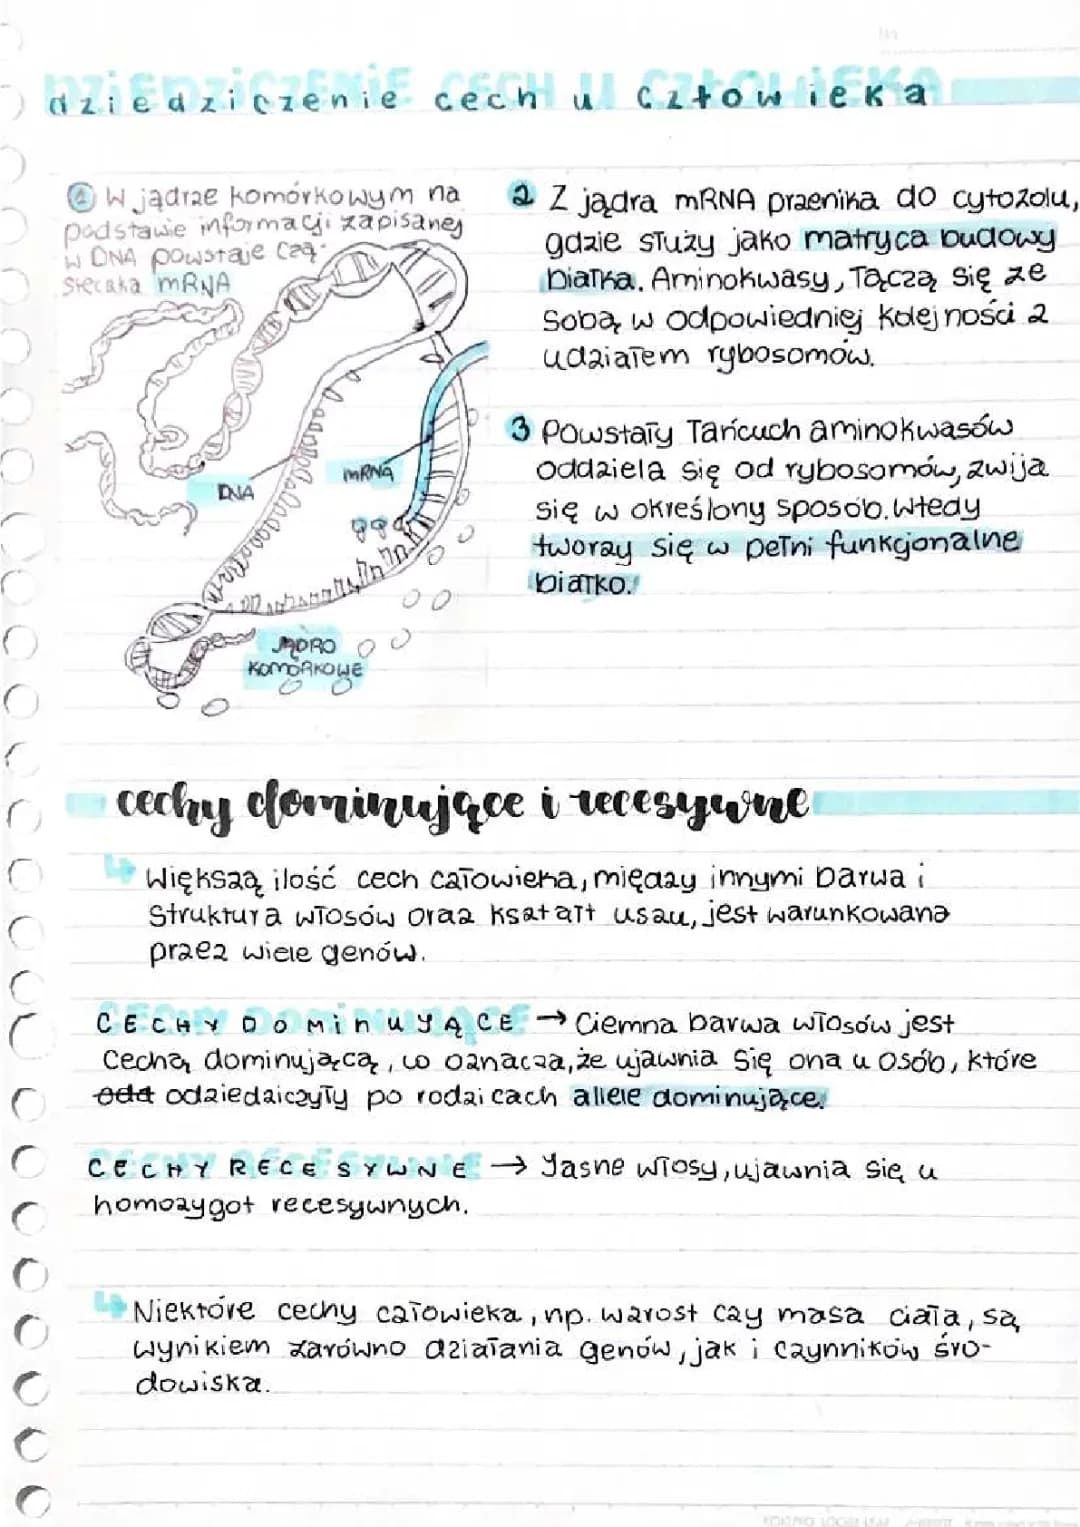 dziedziczenie cech u człowieka
① W jądrze komórkowym na
podstawie informacji zapisanej
w DNA powstaje czą-
steczka mRNA
DNA
mRNA
JĄDRO
KOMÓRKOWE
2 Z jądra mRNA przenika do cytozolu,
gdzie służy jako matryca budowy
białka. Aminokwasy, łączą się ze
sobą w odpowiedniej kolejności z
udziałem rybosomów.
3 Powstały łańcuch aminokwasów
oddziela się od rybosomów, zwija
się w określony sposób. Wtedy
tworzy się w pełni funkcjonalne
białko.
cechy dominujące i recesywne
↳ Większą ilość cech człowieka, między innymi barwa i
struktura włosów oraz kształt uszu, jest warunkowana
przez wiele genów.
CECHY DOMINUJĄCE → Ciemna barwa włosów jest
cechą dominującą, co oznacza, że ujawnia się ona u osób, które
odziedziczyły po rodzicach allele dominujące.
CECHY RECESYWNE → Jasne włosy, ujawnia się u
homozygot recesywnych.
↳ Niektóre cechy człowieka, np. wzrost czy masa ciała, są
wynikiem zarówno działania genów, jak i czynnników śro-
dowiska.